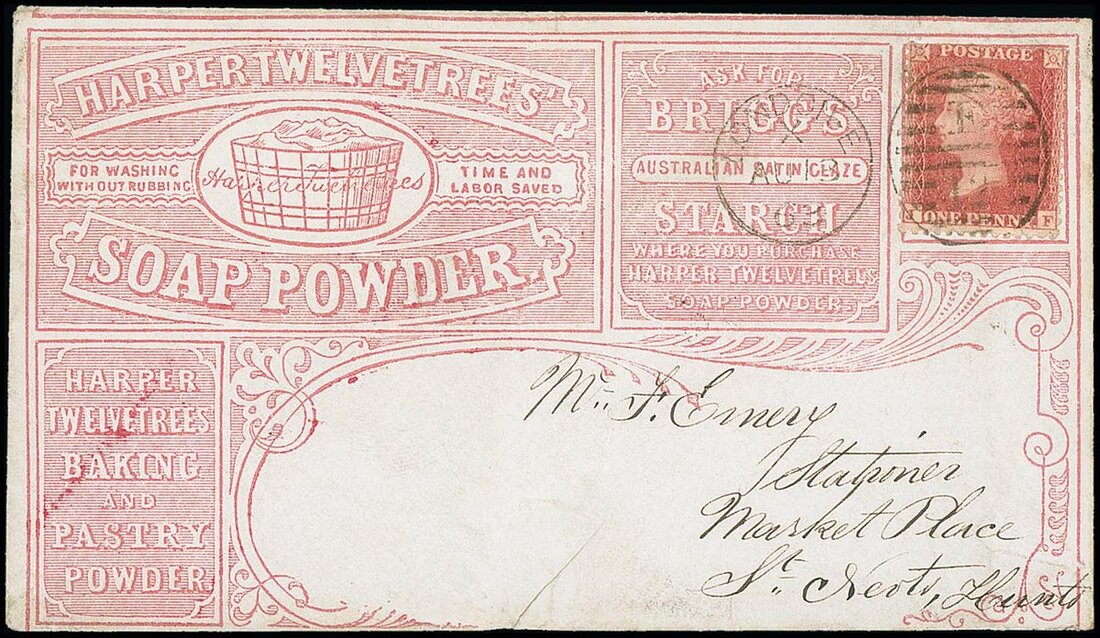 HARPER TWELVETREES'
FOR WASHING
WITHOUT RUBBING
Harper Twelvetrees
TIME AND
LABOR SAVED
SOAP POWDER.
ASK FOR
BRIGGS
AUSTRALIAN SATIN GLAZE
STARCH
WHERE YOU PURCHASE
HARPER TWELVETREES
SOAP POWDER.
AU 13
POSTAGE
ONE PENNY
F
HARPER
TWELVETREES
BAKING
AND
PASTRY
POWDER
Mr. F. Emery
Stationer
Market Place
St. Neots, Hunts